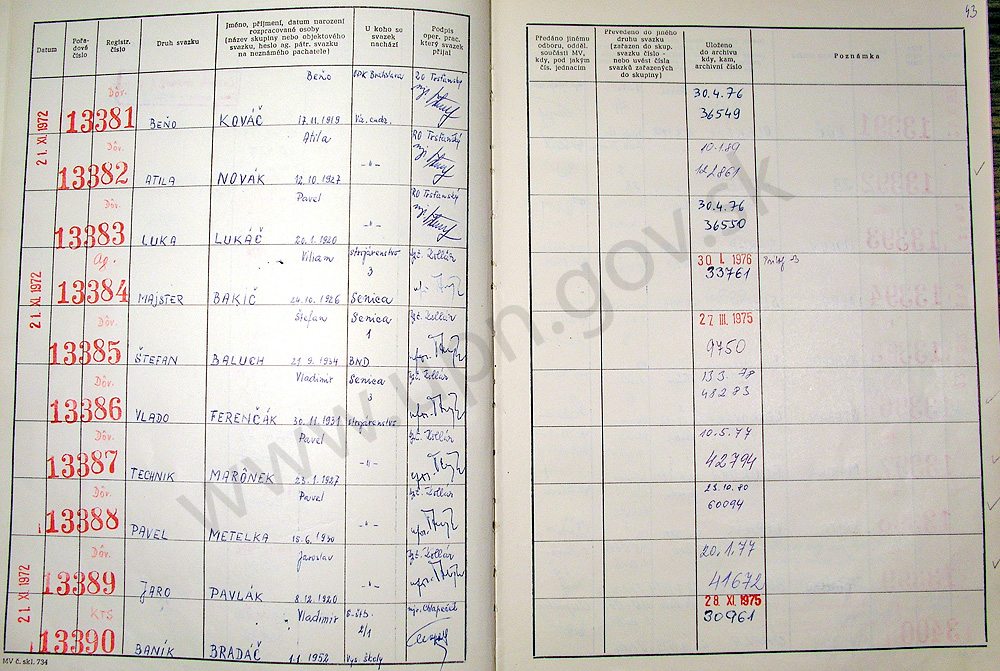 43
Datum
Pořa-
dové
číslo
Registr.
číslo
Druh svazku
Jméno, příjmení, datum narození
rozpracované osoby
(název skupiny nebo objektového
svazku, heslo ag. pátr. svazku
na neznámého pachatele)
U koho se
svazek
nachází
Podpis
oper. prac.
který svazek
přijal
Předáno jinému
odboru, odděl.
součásti MV,
kdy, pod jakým
čís. jednacím
Převedeno do jiného
druhu svazku
(zařazen do skup.
svazku číslo -
nebo uvést čísla
svazků zařazených
do skupiny)
Uloženo
do archivu
kdy, kam,
archivní číslo
Poznámka
21. XI. 1972
Dôv.
13381
BEŇO
Beňo
KOVÁČ 17.11.1919
OPK Bratislava
Víz. cudz.
20 Trsťanský
30.4.76
36549
Dôv.
13382
ATILA
Atila
NOVÁK 12.10.1927
-"-
20 Trsťanský
10.1.89
Dôv.
13383
LUKA
Pavel
LUKÁČ 20.1.1920
-"-
20 Trsťanský
30.4.76
36550
21. XI. 1972
Ag.
13384
MAJSTER
Viliam
BAKIČ 24.10.1926
strojárenstvo
3
Senica
30 I. 1976
33761
Dôv.
13385
ŠTEFAN
Štefan
BALUCH 21.9.1934
Senica
1
BND
27 III. 1975
9750
Dôv.
13386
VLADO
Vladimír
FERENČÁK 30.11.1931
Senica
3
strojárenstvo
13.3.78
48283
Dôv.
13387
TECHNIK
Pavel
MARÔNEK 23.1.1927
-"-
10.5.77
42794
Dôv.
13388
PAVEL
Pavel
METELKA 15.6.1930
-"-
23.10.80
60094
21. XI. 1972
Dôv.
13389
JARO
Jaroslav
PAVLÁK 8.12.1920
-"-
20.1.77
41672
KTS
13390
BANÍK
Vladimír
BRADÁČ 1.1.1952
2/1
Vys. školy
28 XI. 1975
30961
MV č. skl. 734
www.upn.gov.sk